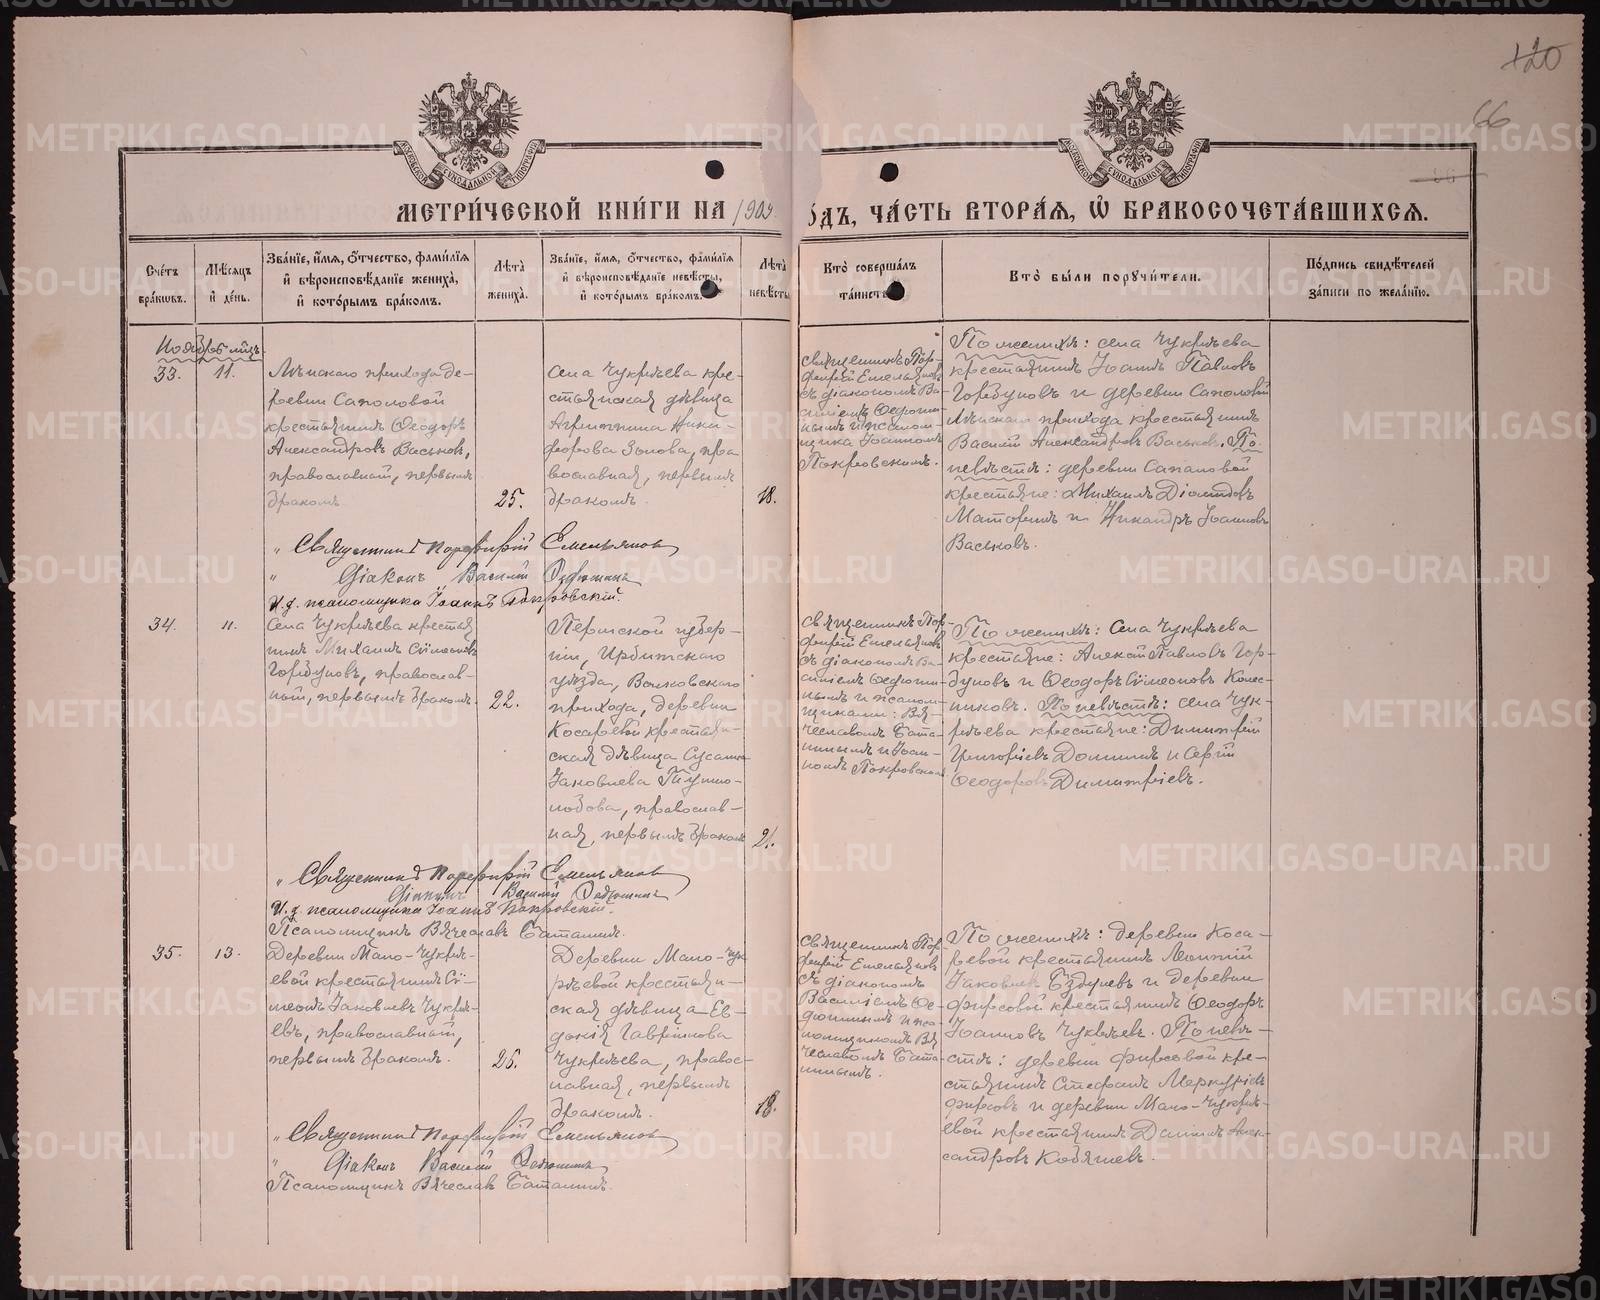 120
66
МЕТРИ́ЧЕСКОЙ КНИ́ГИ НА 1909 ОДЪ, ЧА́СТЬ ВТОРА́Я, Ѡ БРАКОСОЧЕТА́ВШИХСЯ.
Сче́тъ бра́кшвъ.
Мѣ́сяцъ и҆ де́нь.
Зва́нїе, и҆́мя, ѻ҆́тчество, фами́лїя и҆ вѣроисповѣ́данїе жениха̀, и҆ кото́рымъ бра́комъ.
Лѣ́та жениха̀.
Зва́нїе, и҆́мя, ѻ҆́тчество, фами́лїя и҆ вѣроисповѣ́данїе невѣ́сты, и҆ кото́рымъ бра́комъ.
Лѣ́та невѣ́сты
Кто̀ соверша́лъ та́инств
Кто̀ бы́ли порꙋчи́тели.
По́дпись свидѣ́телей за́писи по жела́нїю.
Ноябрь мѣц.
33.
11.
прихода де-
ревни Саполовой
крестьянинъ Ѳеодоръ
Александровъ Васьковъ,
православный, первымъ
бракомъ.
25.
Села Чукрѣева кре-
стьянская дѣвица
Агриппина Ники-
форова Зонова, пра
вославная, первымъ
бракомъ.
18.
Священникъ Пор-
фирій Емельяновъ
съ діакономъ Ва-
силіемъ Ѳедюши-
нымъ и псалом-
щика Іоанномъ
Покровскимъ.
По женихѣ: села Чукрѣева
крестьянинъ Іоаннъ Павловъ
Горбуновъ и деревни Саполовой
прихода крестьянинъ
Василій Александровъ Васьковъ. По
невѣстѣ: деревни Сапаловой
крестьяне: Михаилъ
и Никандръ Іоанновъ
Васьковъ.
Священникъ Порфирій Емельяновъ
Діаконъ Василій Ѳедюшинъ
И. д. псаломщика Іоаннъ Покровскій.
34.
11.
Села Чукрѣева крестья
нинъ Михаилъ Сѵмеоновъ
Горбуновъ, православ-
ный, первымъ бракомъ.
22.
Пермской губер-
ніи, Ирбитскаго
уѣзда, Волковскаго
прихода, деревни
Косаревой крестьян-
ская дѣвица Сусанна
Іаковлева
православ-
ная, первымъ бракомъ
21.
Священникъ Пор-
фирій Емельяновъ
съ діакономъ Ва-
силіемъ Ѳедюши-
нымъ и псалом-
щиками: Вя-
чеславомъ Бата-
нинымъ и Іоан-
номъ Покровским
По женихѣ: Села Чукрѣева
крестьяне: Алексѣй Павловъ Гор-
буновъ и Ѳеодоръ Сѵмеоновъ Колес-
никовъ. По невѣстѣ: села Чук-
рѣева крестьяне: Димитрій
Григорьевъ и Сергій
Ѳеодоровъ Димитріевъ.
Священникъ Порфирій Емельяновъ
Діаконъ Василій Ѳедюшинъ
И. д. псаломщика Іоаннъ Покровскій.
Псаломщикъ Вячеславъ Батанинъ.
35.
13.
Деревни Мало-Чукрѣ-
евой крестьянинъ Сѵ-
меонъ Іаковлевъ Чукрѣ-
евъ, православный,
первымъ бракомъ.
Деревни Мало-Чук
рѣевой крестьян-
ская дѣвица Ев-
докія Гавріилова
Чукрѣева, правос-
лавная, первымъ
бракомъ.
18.
Священникъ Пор-
фирій Емельяновъ
съ діакономъ
Василіемъ Ѳе-
дюшинымъ и пса-
ломщикомъ Вя
чеславомъ Бата-
нинымъ.
По женихѣ: деревни Коса-
ревой крестьянинъ Леонтій
Іаковлевъ и деревни
Фирсовой крестьянинъ Ѳеодоръ
Іоанновъ Чукрѣевъ. По невѣ-
стѣ: деревни Фирсовой кре-
стьянинъ Стефанъ Меркурьевъ
Фирсовъ и деревни Мало-Чукрѣ-
евой крестьянинъ Даніилъ Алек-
сандровъ Кобяшевъ.
Священникъ Порфирій Емельяновъ
Діаконъ Василій Ѳедюшинъ
Псаломщикъ Вячеславъ Батанинъ.
METRIKI.GASO-URAL.RU